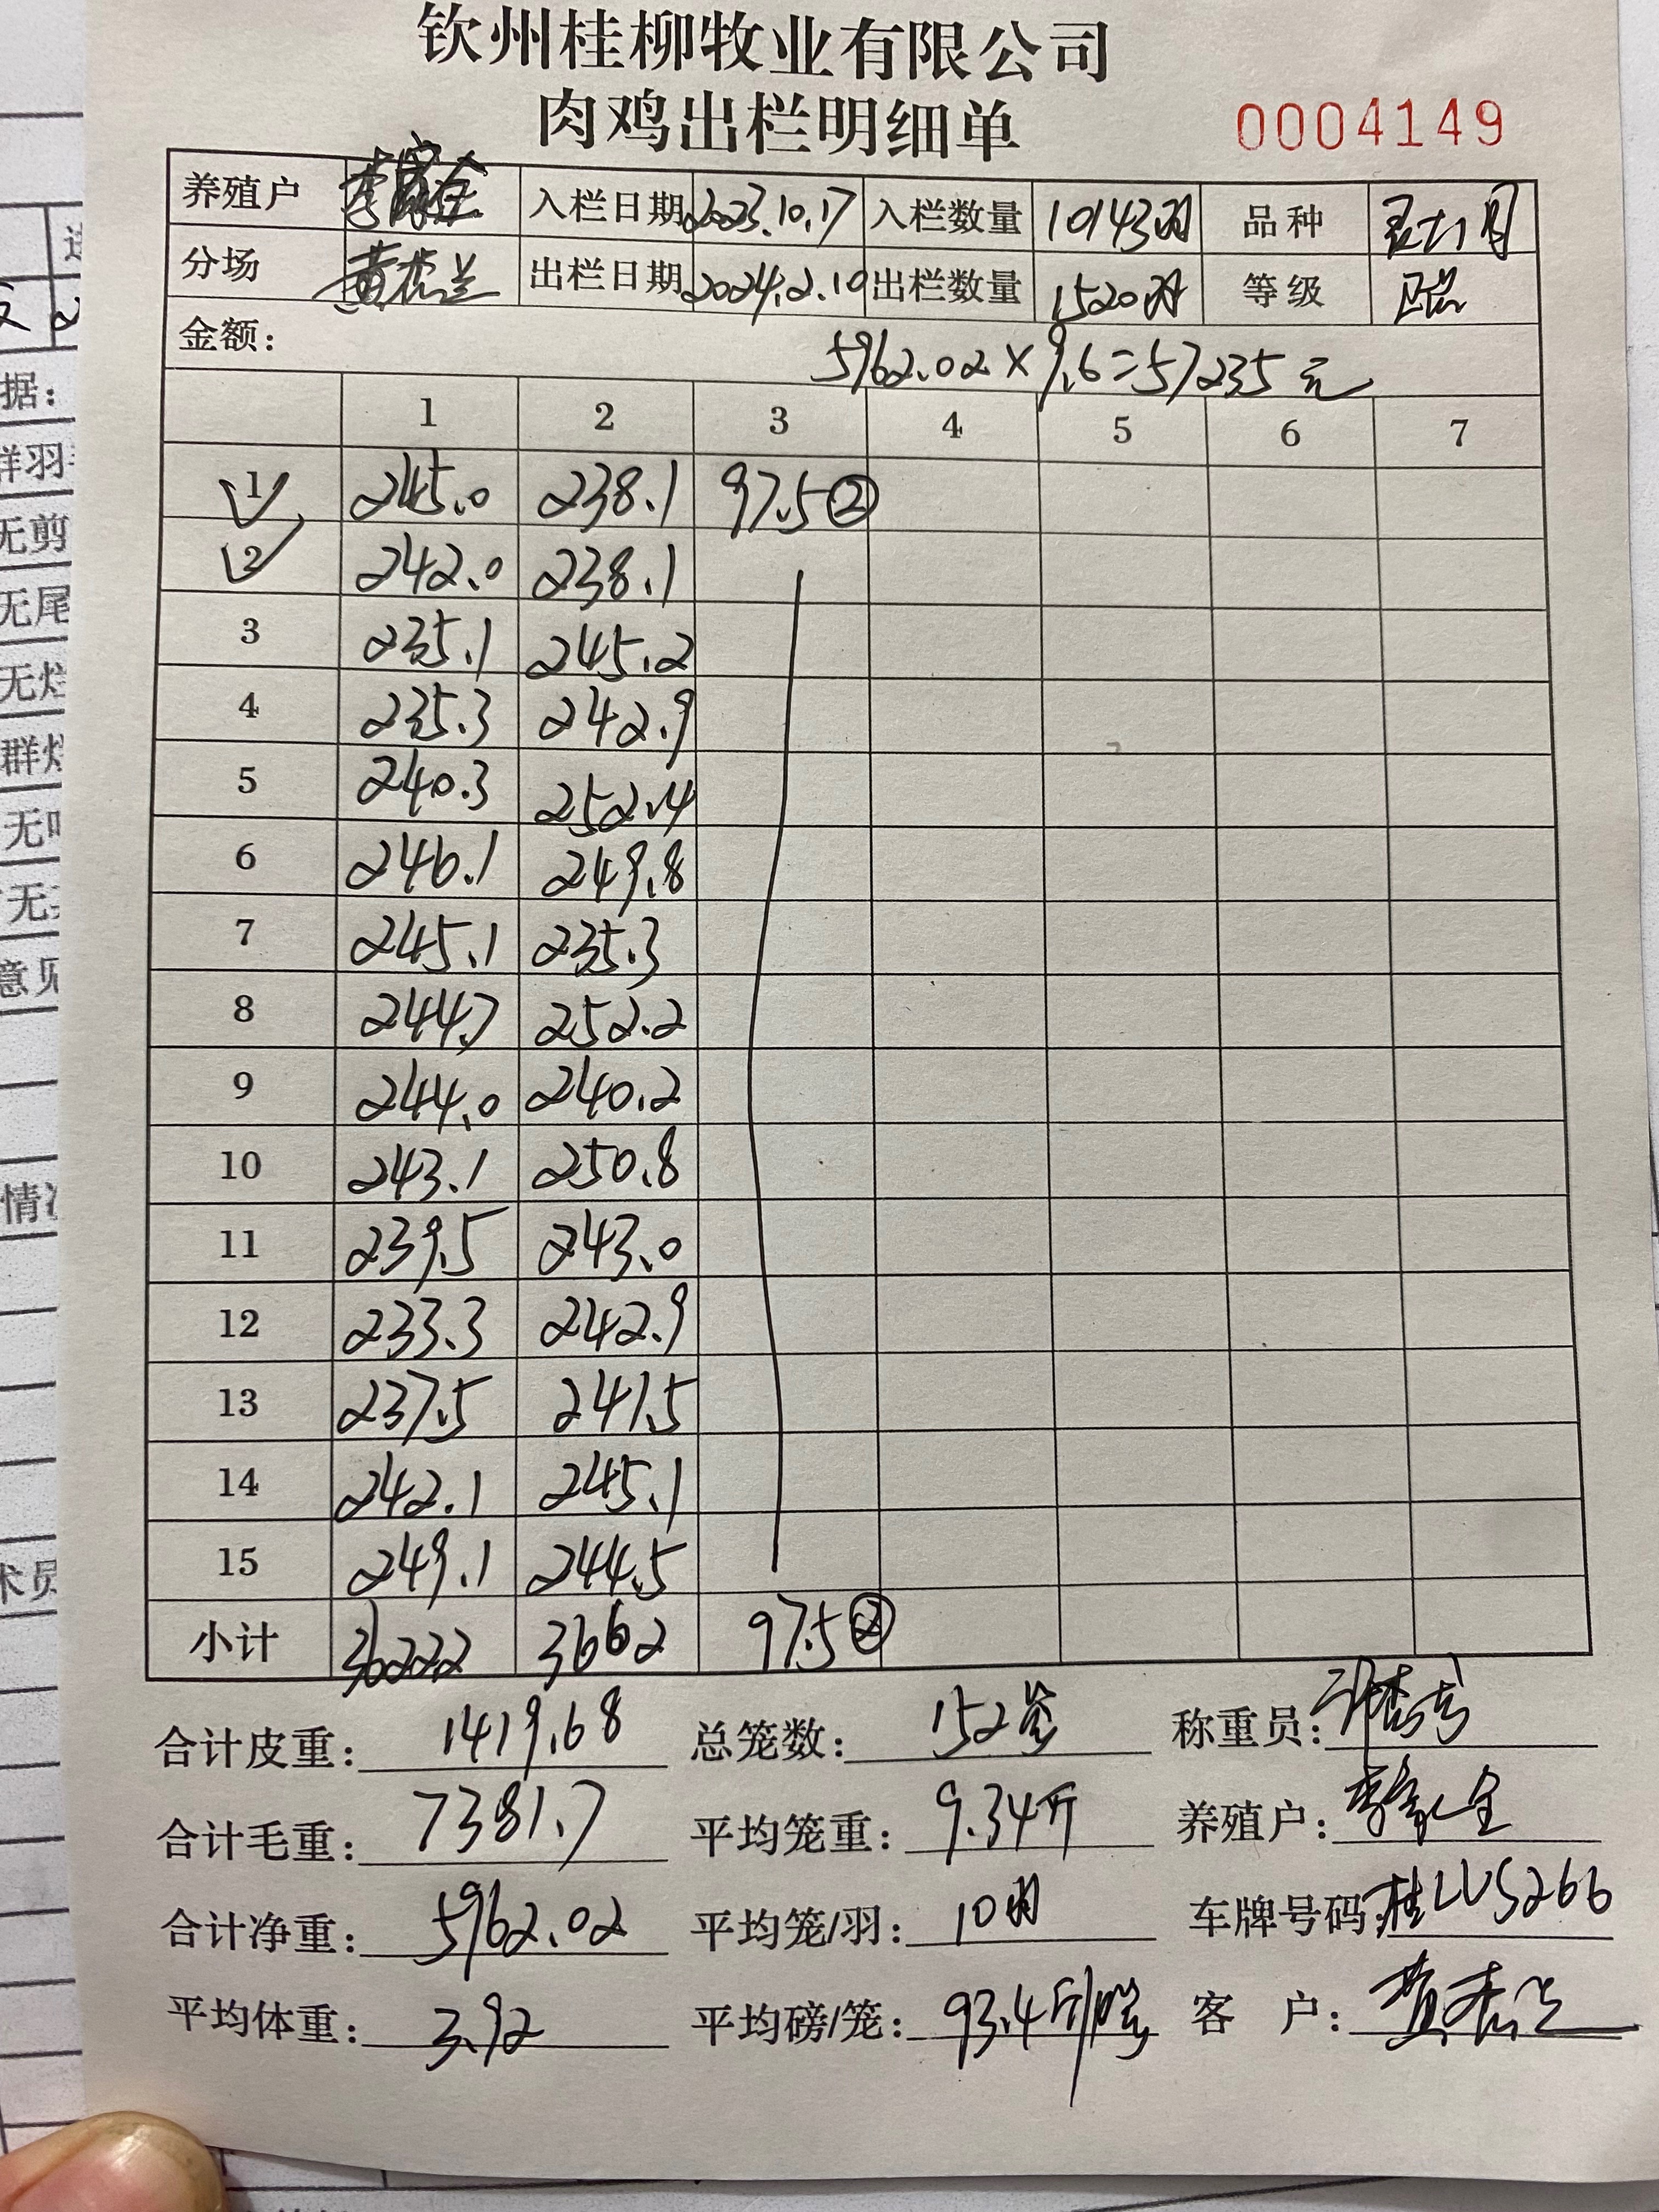 钦州桂柳牧业有限公司
肉鸡出栏明细单 0004149
养殖户 李家全 入栏日期 2023.10.17 入栏数量 10143羽 品种
分场 出栏日期 2024.2.10 出栏数量 1520羽 等级
金额: 5962.02×9.6=57235元
1 2 3 4 5 6 7
1 245.0 238.1 97.5②
2 242.0 238.1
3 235.1 245.2
4 235.3 242.9
5 240.3 252.4
6 246.1 249.8
7 245.1 235.3
8 244.7 252.2
9 244.0 240.2
10 243.1 250.8
11 239.5 243.0
12 233.3 242.9
13 237.5 241.5
14 242.1 245.1
15 249.1 244.5
小计 3622.2 3662 97.5②
合计皮重: 1419.68 总笼数: 152笼 称重员:
合计毛重: 7381.7 平均笼重: 9.34斤 养殖户: 李家全
合计净重: 5962.02 平均笼/羽: 10羽 车牌号码: 桂LU5266
平均体重: 3.92 平均磅/笼: 93.4斤/笼 客户:
据:
群羽
无剪
无尾
无烂
群
无
无
意见
情况
术员